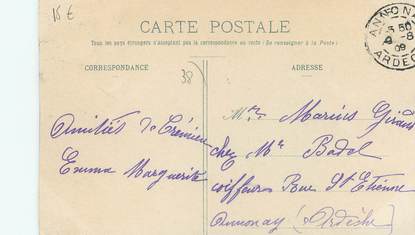 15 €
CARTE POSTALE
Tous les pays étrangers n'acceptent pas la correspondance au recto. (Se renseigner à la Poste)
CORRESPONDANCE
ADRESSE
38
ANNON
5 50
8
09
ARDEC
Mme Marius Giraud
Amitiés de Crémieu
chez Mr Badol
Emma Marguerite
coiffeur Rue St Etienne
Annonay (Ardèche)